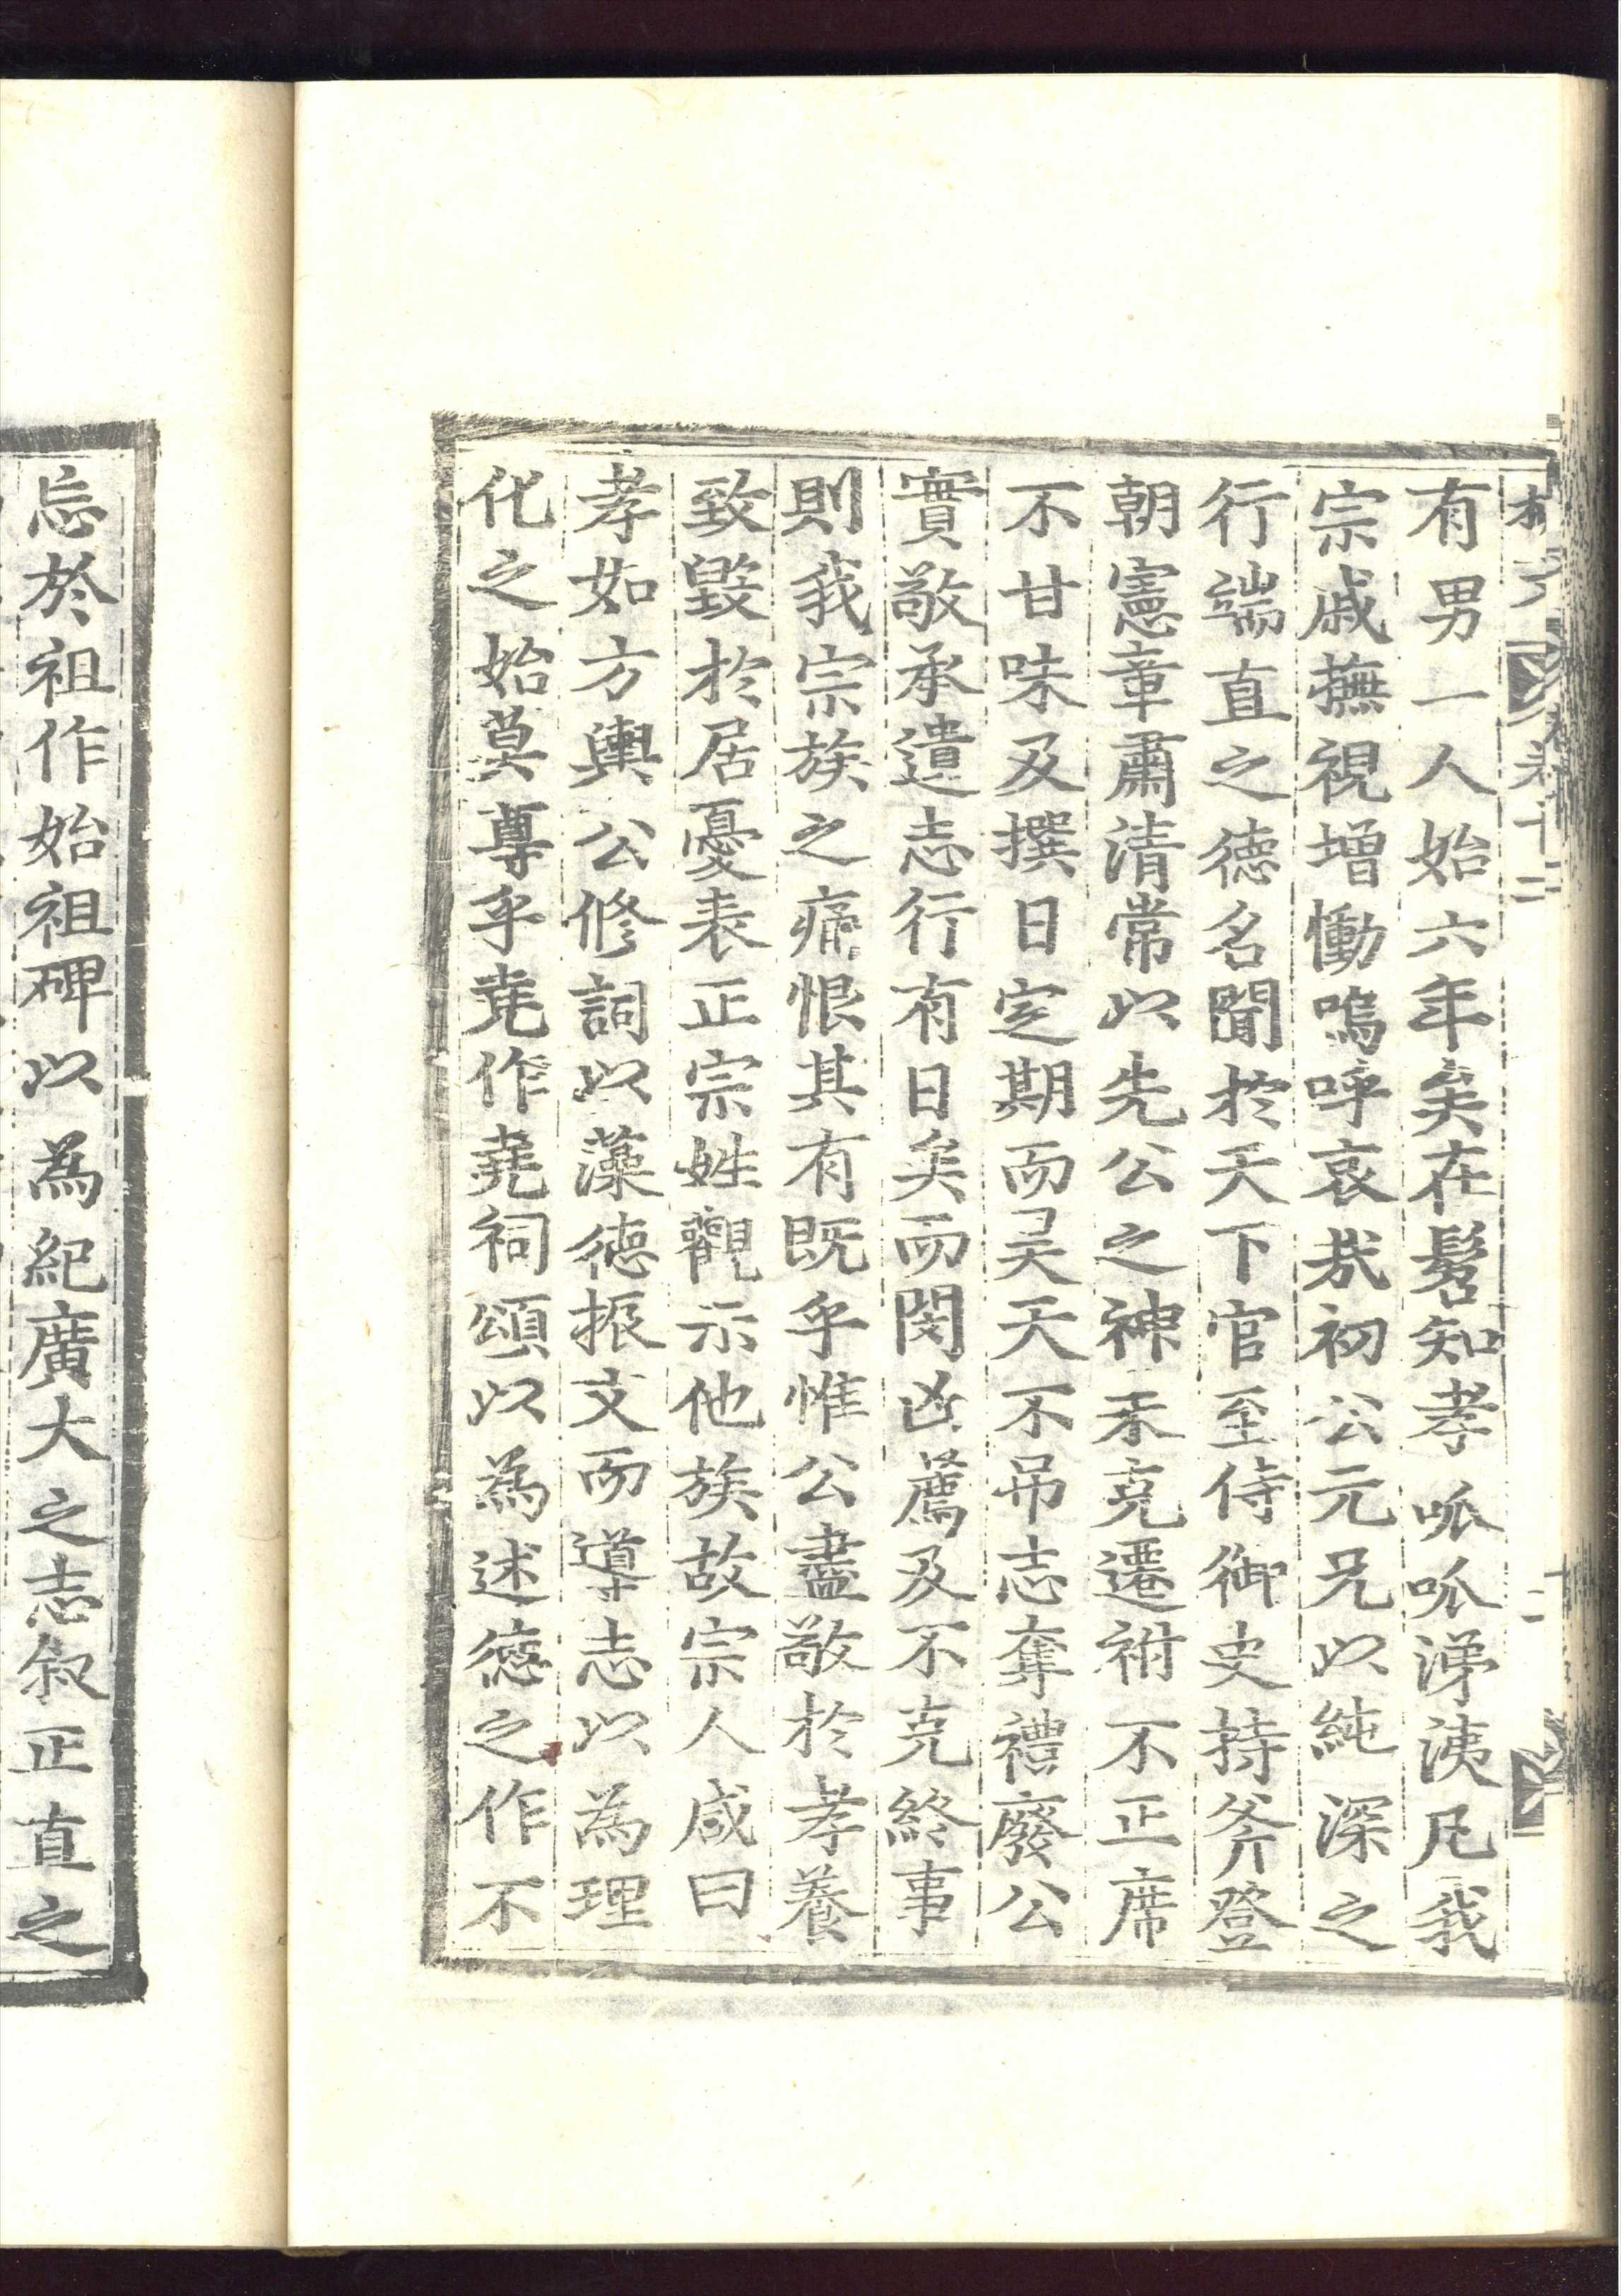 卷十二
十二
有男一人始六年矣在髫知孝呱呱涕洟凡我
宗戚撫視增慟嗚呼哀哉初公元兄以純深之
行端直之德名聞於天下官至侍御史持斧登
朝憲章肅清常以先公之神未克遷祔不正席
不甘味及撰日定期而昊天不吊志奪禮廢公
實敬承遺志行有日矣而閔凶薦及不克終事
則我宗族之痛恨其有既乎惟公盡敬於孝養
致毀於居憂表正宗姓觀示他族故宗人咸曰
孝如方輿公修詞以藻德振文而導志以為理
化之始莫尊乎堯作堯祠頌以為述德之作不
忘於祖作始祖碑以為紀廣大之志叙正直之